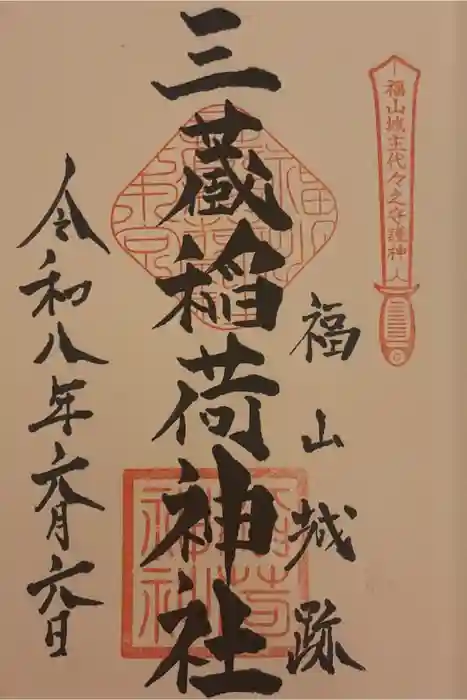 福山城主代々之守護神
福山城跡
三蔵稲荷神社
令和八年六月六日